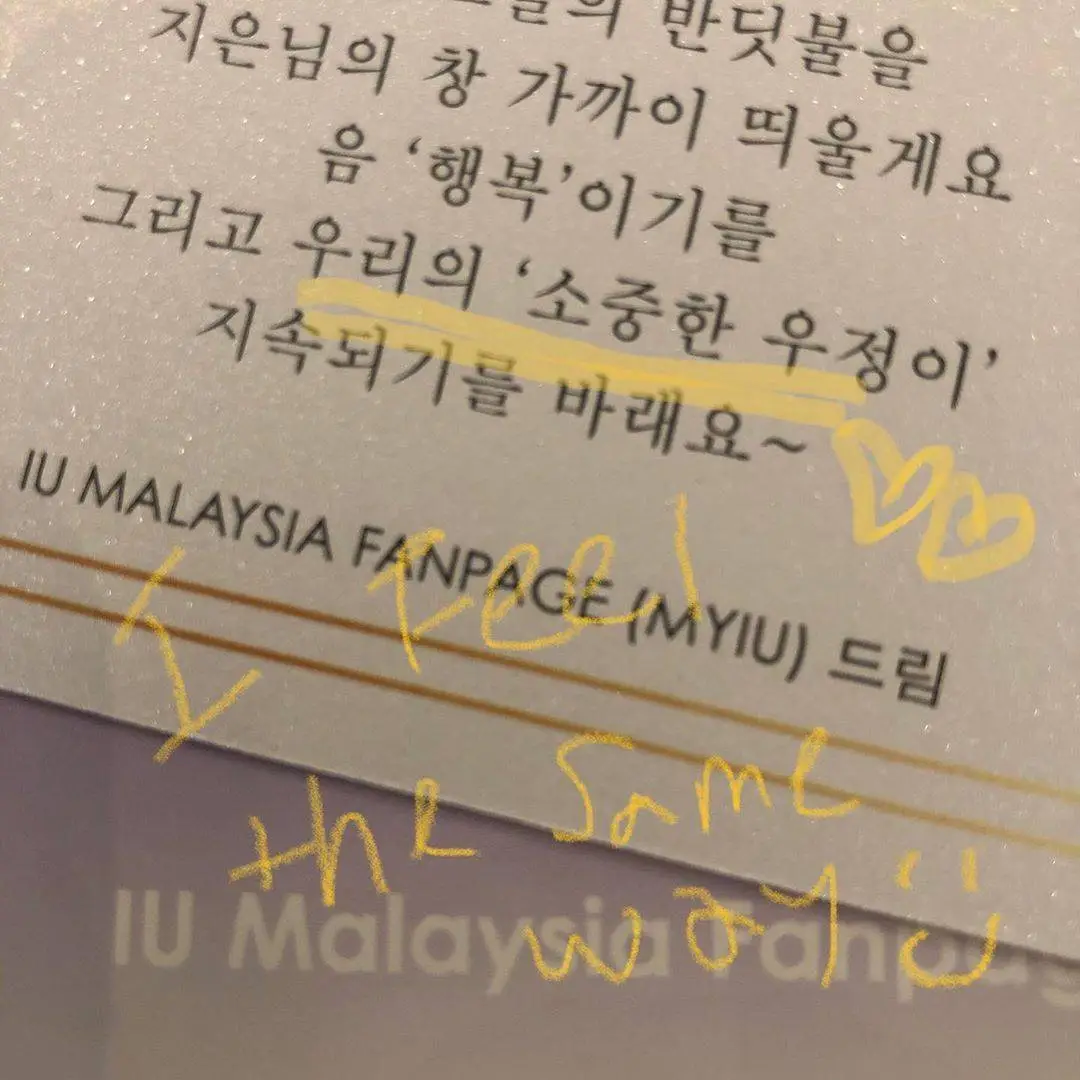 반딧불을
지은님의 창 가까이 띄울게요
음 ‘행복’이기를
그리고 우리의 ‘소중한 우정이’
지속되기를 바래요~
IU MALAYSIA FANPAGE (MYIU) 드림
I Feel
the same
way
IU Malaysia Fanpag